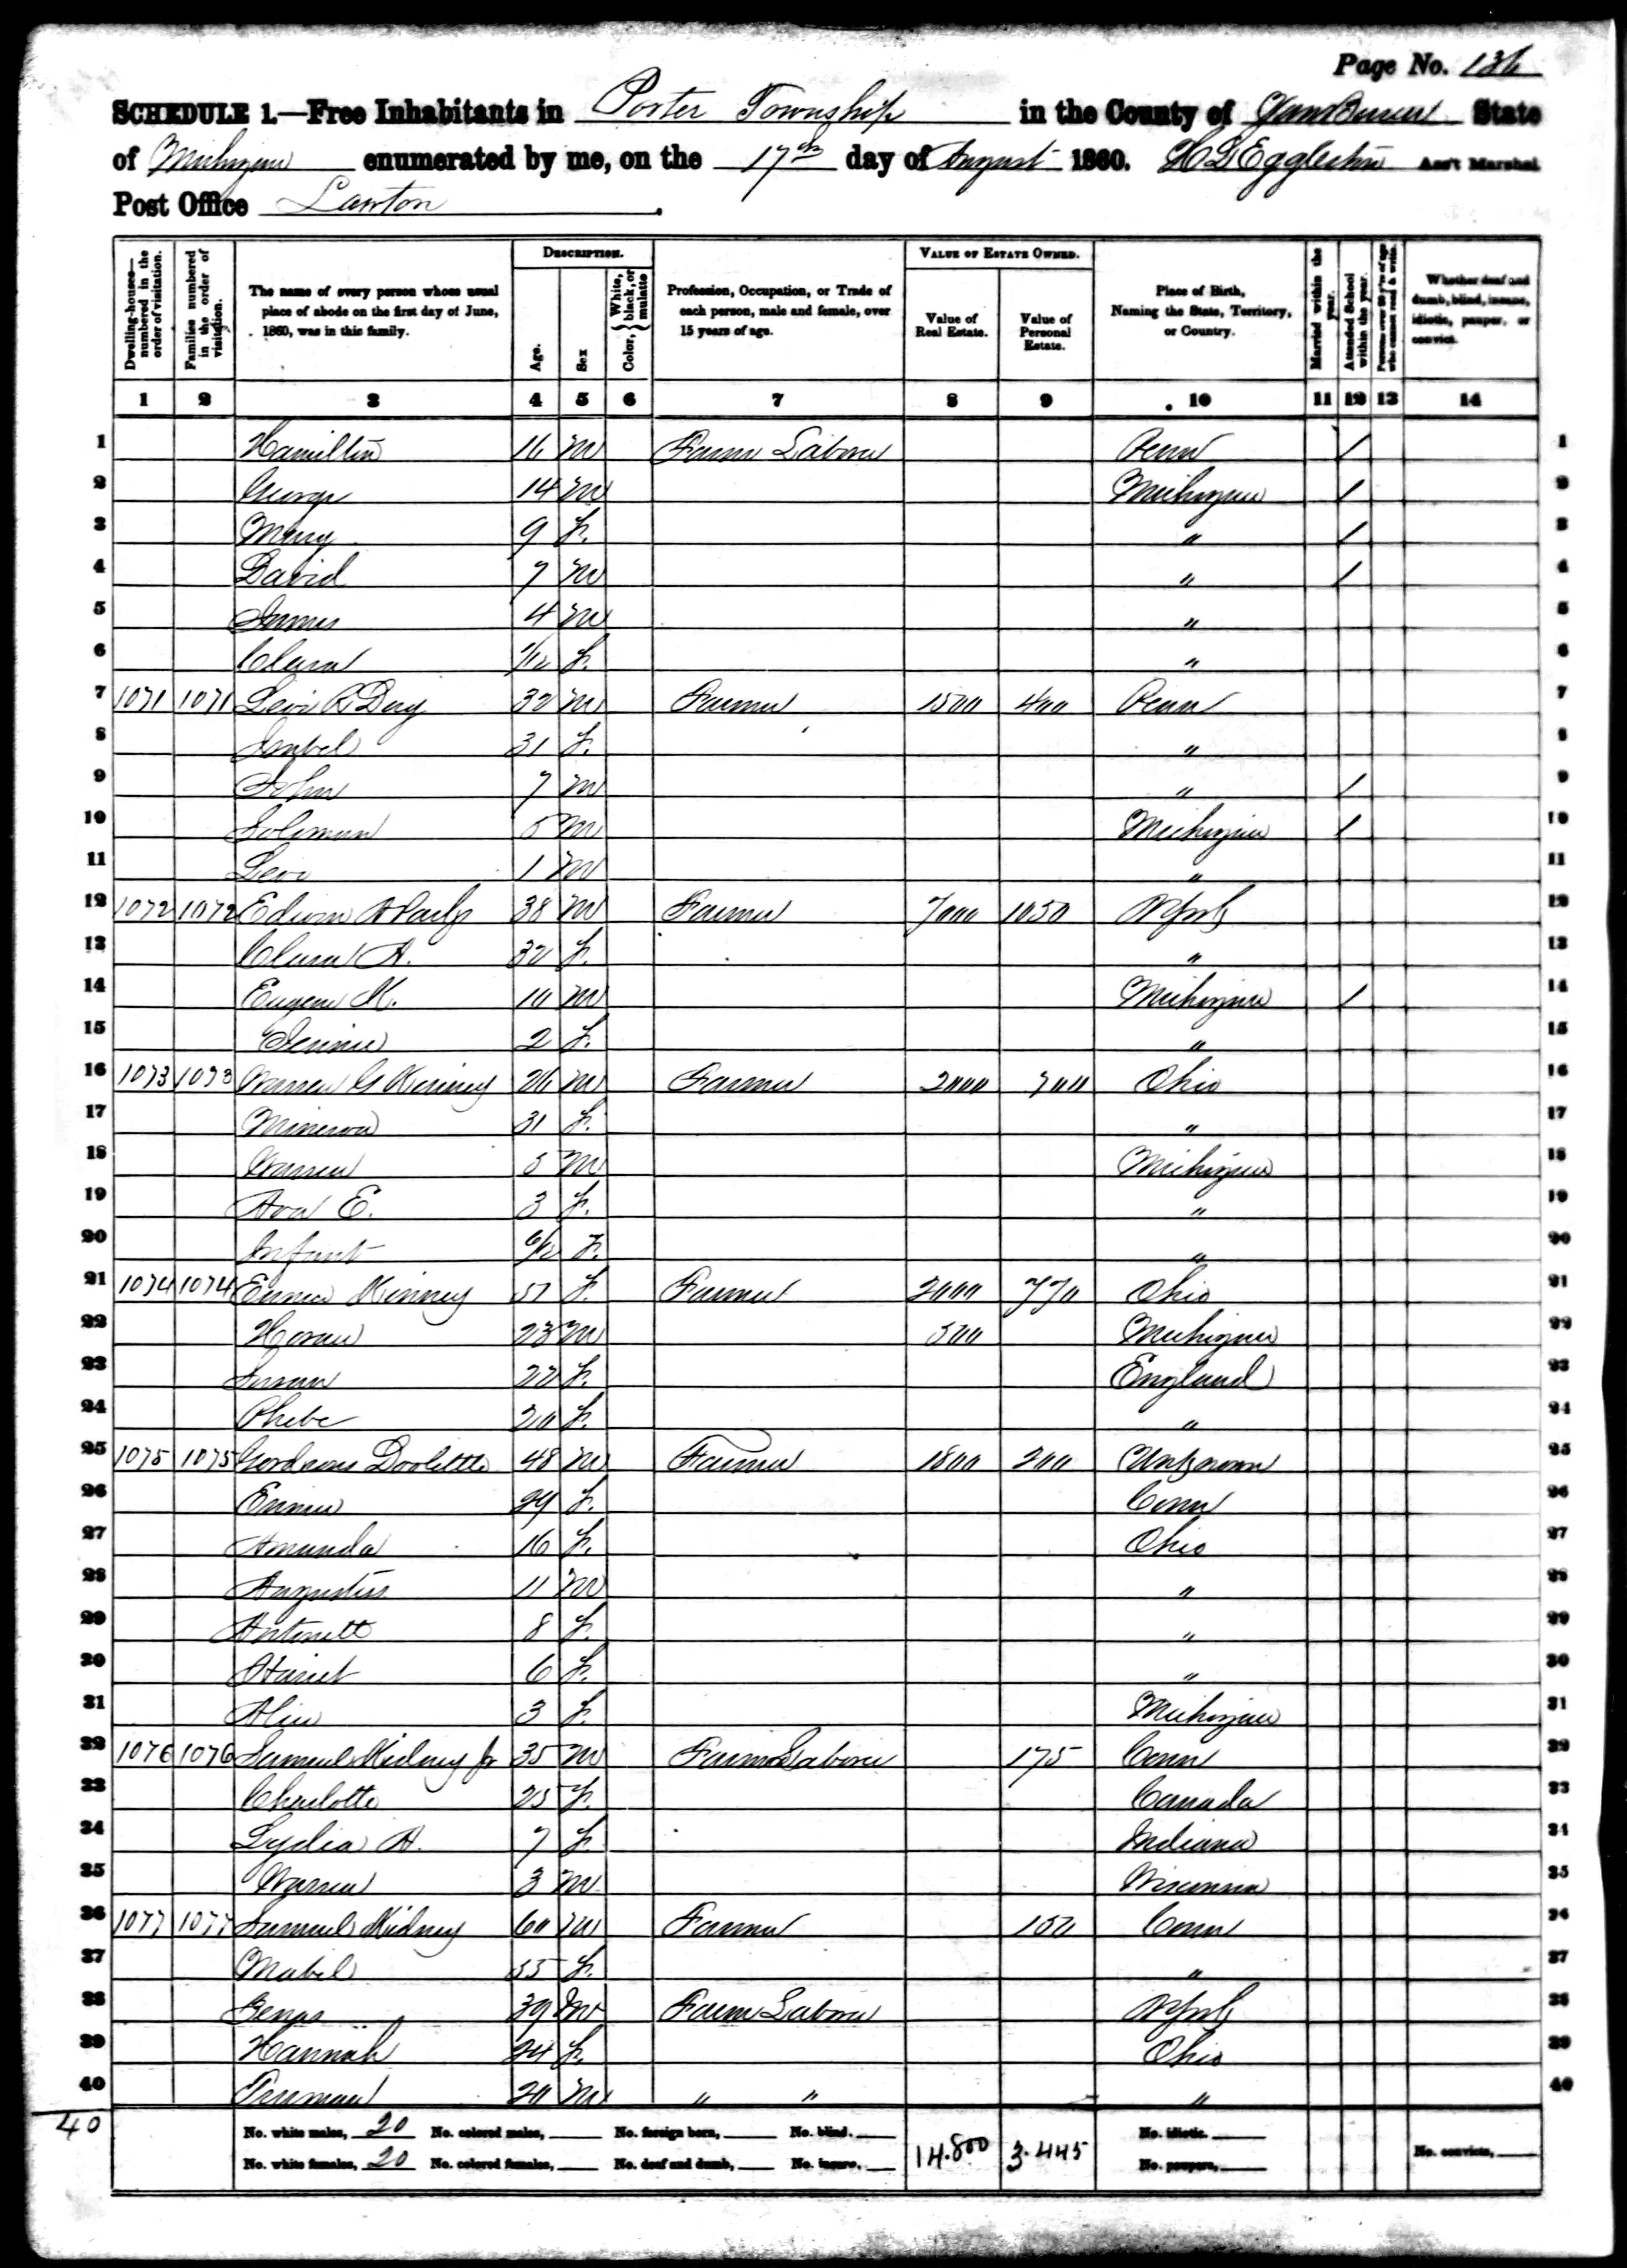 Page No. 136
SCHEDULE 1.—Free Inhabitants in Porter Township in the County of Van Buren State
of Michigan enumerated by me, on the 17th day of August 1860. H D Eggleston Ass't Marshal
Post Office Lawton.
Dwelling-houses—numbered in the order of visitation. Families numbered in the order of visitation. The name of every person whose usual place of abode on the first day of June, 1860, was in this family. DESCRIPTION. Age. Sex Color, White, black, or mulatto Profession, Occupation, or Trade of each person, male and female, over 15 years of age. VALUE OF ESTATE OWNED. Value of Real Estate. Value of Personal Estate. Place of Birth, Naming the State, Territory, or Country. Married within the year. Attended School within the year. Persons over 20 y'rs of age who cannot read & write. Whether deaf and dumb, blind, insane, idiotic, pauper, or convict.
1 2 3 4 5 6 7 8 9 10 11 12 13 14
1 Hamilton 16 M Farm Labour Penn / 1
2 George 14 M Michigan / 2
3 Mary 9 F. " / 3
4 David 7 M " / 4
5 James 4 M " 5
6 Clara 1/12 F. " 6
7 1071 1071 Levi R Day 32 M Farmer 1500 400 Penn 7
8 Isabel 31 F. " 8
9 John 7 M " / 9
10 Soloman 5 M Michigan / 10
11 Levi 1 M " 11
12 1072 1072 Edwin 38 M Farmer 7000 1050 N York 12
13 Clara A. 32 F. " 13
14 Eugene M. 10 M Michigan / 14
15 Jennie 2 F. " 15
16 1073 1073 Warren G Kinney 26 M Farmer 2000 700 Ohio 16
17 Minerva 31 F. " 17
18 Warren 5 M Michigan 18
19 Ava E. 3 F. " 19
20 Infant 6/12 F. " 20
21 1074 1074 Kinney 57 F. Farmer 2000 770 Ohio 21
22 23 M 500 Michigan 22
23 Susan 22 F. England 23
24 Phebe 20 F. " 24
25 1075 1075 Doolittle 48 M Farmer 1800 200 Unknown 25
26 F. Conn 26
27 Amanda 16 F. Ohio 27
28 Augustus 11 M " 28
29 Antonett 8 F. " 29
30 Hariet 6 F. " 30
31 3 F. Michigan 31
32 1076 1076 Samuel Kidney Jr 35 M Farm Labour 175 Conn 32
33 Charlotte 25 F. Canada 33
34 Lydia A. 7 F. Indiana 34
35 Warren 3 M Wisconsin 35
36 1077 1077 Samuel Kidney 60 M Farmer 150 Conn 36
37 Mabel 55 F. " 37
38 39 M Farm Labour N York 38
39 Hannah 24 F. Ohio 39
40 Truman 20 M " " " 40
40 No. white males, 20 No. colored males, No. foreign born, No. blind. 14.800 3.445 No. idiotic.
No. white females, 20 No. colored females, No. deaf and dumb, No. insane, No. paupers, No. convicts,